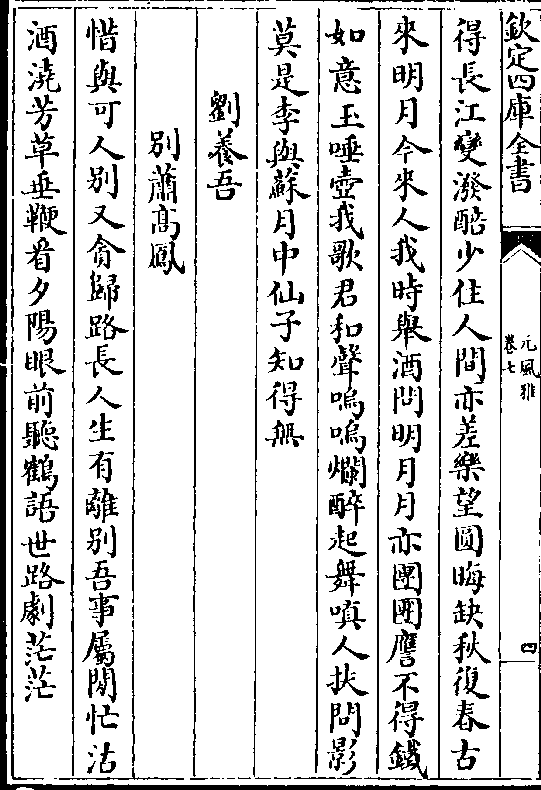 欽定四庫全書
元風雅
卷七
四
得長江變潑醅少住人間亦差樂望圓晦缺秋復春古
來明月今來人我時舉酒問明月月亦團團譍不得鐵
如意玉唾壺我歌君和聲嗚嗚爛醉起舞嗔人扶問影
莫是李與蘇月中仙子知得無
劉養吾
別蕭高鳳
惜與可人別又貪歸路長人生有離別吾事屬閒忙沽
酒澆芳草垂鞭看夕陽眼前聽鶴語世路劇茫茫